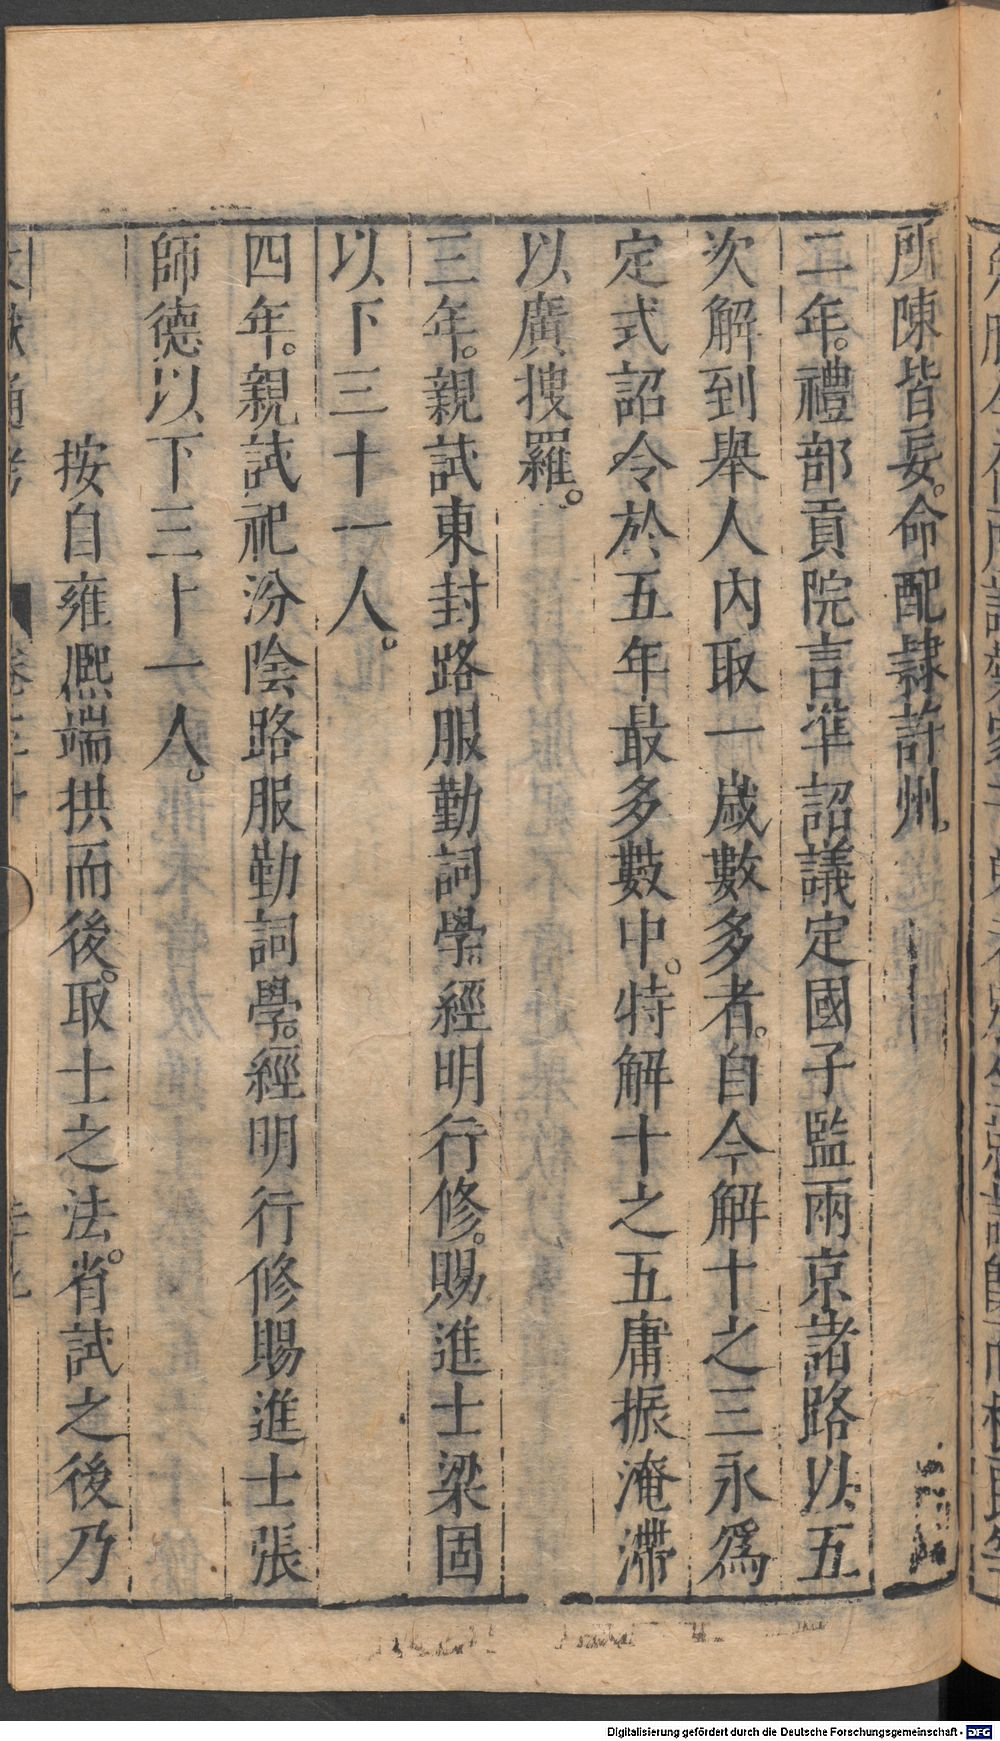 所陳皆妄。命配隷許州。
二年。禮部貢院言準詔議定國子監兩京諸路以五
次解到舉人內取一歲數多者。自今解十之三永爲
定式詔令於五年最多數中。特解十之五庸振淹滯
以廣搜羅。
三年。親試東封路服勤詞學經明行修。賜進士梁固
以下三十一人。
四年。親試祀汾陰路服勤詞學。經明行修賜進士張
師德以下三十一人。
按自雍熈端拱而後。取士之法。省試之後乃
Digitalisierung gefördert durch die Deutsche Forschungsgemeinschaft - DFG